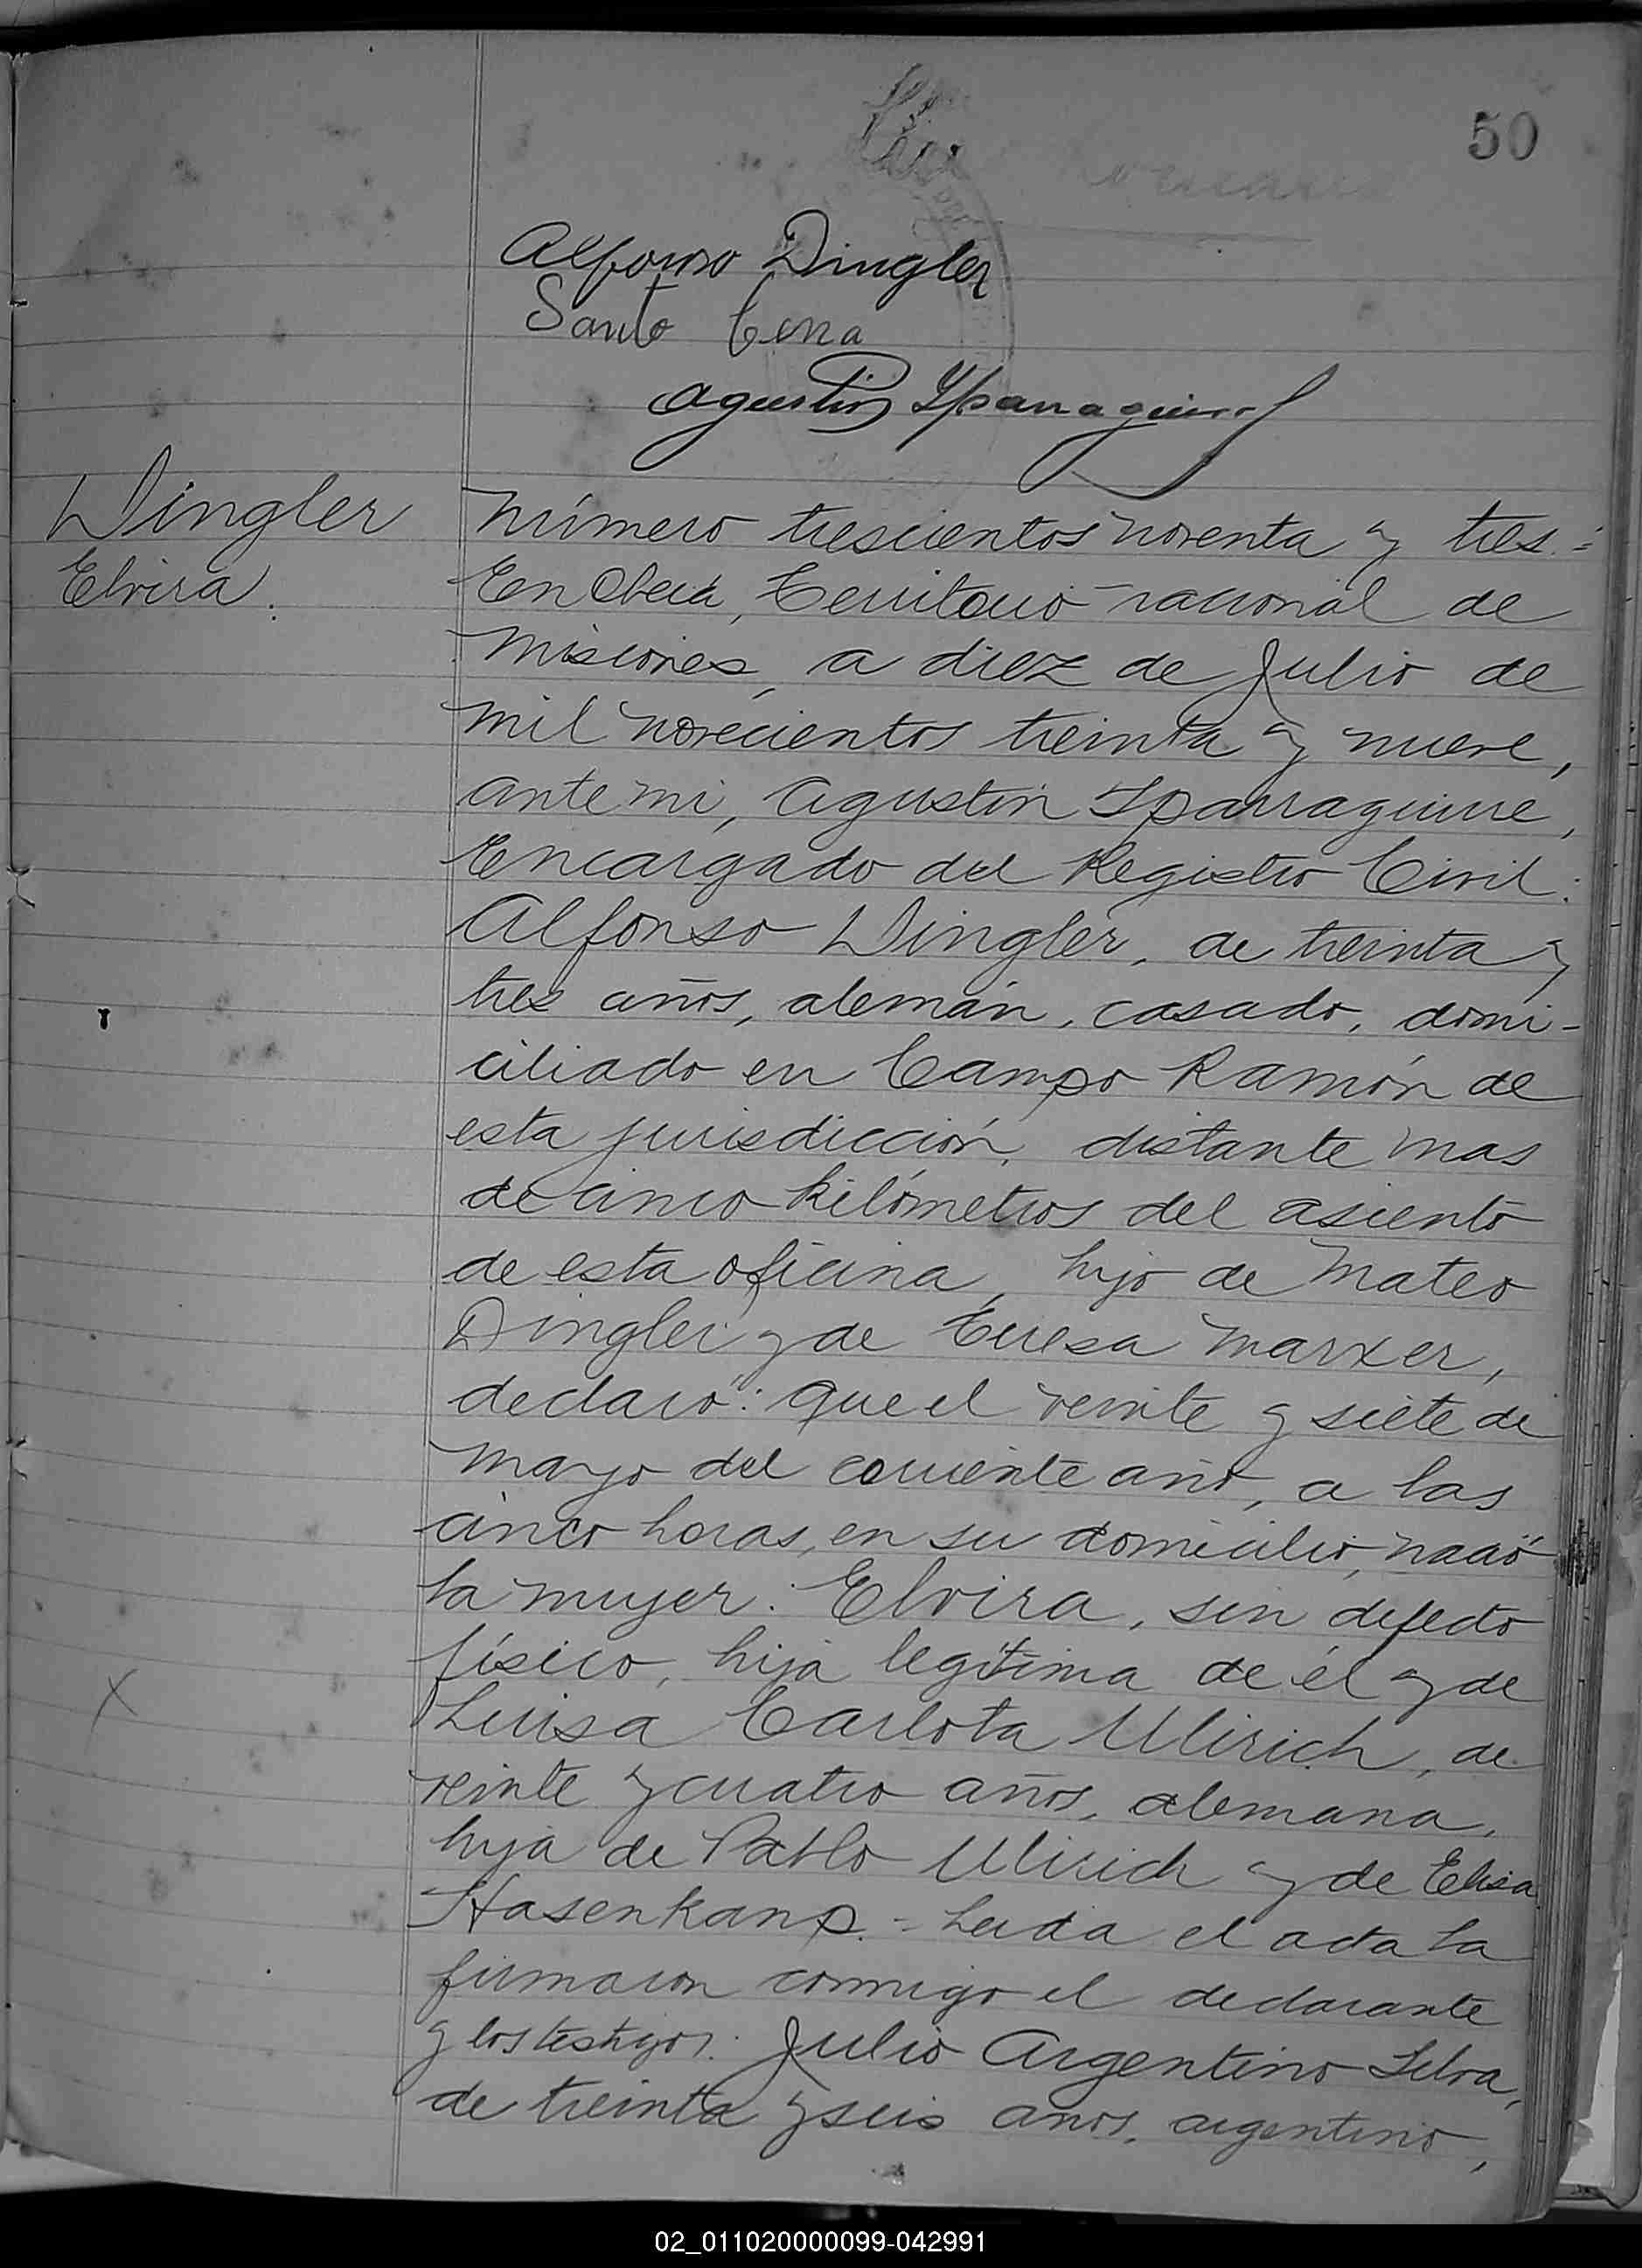 50
Alfonso Dingler
Santo Cena
Agustin Yparraguirre
Dingler
Elvira.
Número trescientos noventa y tres.=
En Oberá, Territorio nacional de
Misiones, a diez de Julio de
mil novecientos treinta y nueve,
ante mi, Agustin Yparraguirre,
Encargado del Registro Civil:
Alfonso Dingler, de treinta y
tres años, alemán, casado, domi-
ciliado en Campo Ramón de
esta jurisdicción, distante mas
de cinco kilómetros del asiento
de esta oficina, hijo de Mateo
Dingler y de Teresa Marxer,
declaró: Que el veinte y siete de
Mayo del corriente año, a las
cinco horas, en su domicilio, nació
la mujer: Elvira, sin defecto
físico, hija legítima de él y de
Luisa Carlota Ulirich, de
veinte y cuatro años, alemana,
hija de Pablo Ulirich y de Elisa
Hasenkanp.- Leida el acta la
firmaron conmigo el declarante
y los testigos: Julio Argentino Selva,
de treinta y seis años, argentino,
02_011020000099-042991